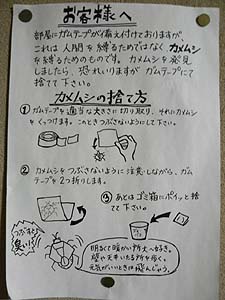 お客様へ
部屋にガムテープが備え付けておりますが、
これは人間を縛るためではなくカメムシ
を縛るためのものです。カメムシを発見
しましたら、恐れいりますがガムテープにて
捨てて下さい。
カメムシの捨て方
① ガムテープを適当な大きさに切り取り、それにカメムシ
をくっつけます。このときつぶさないようにして下さい。
② カメムシをつぶさないように注意しながら、ガム
テープを2つ折りします。
③ あとはゴミ箱にポイッと捨
てて下さい。
つぶすと
臭い!!
明るくて暖かい所大好き。
壁や天井いろんな所を歩く。
元気がいいときは飛んじゃう。